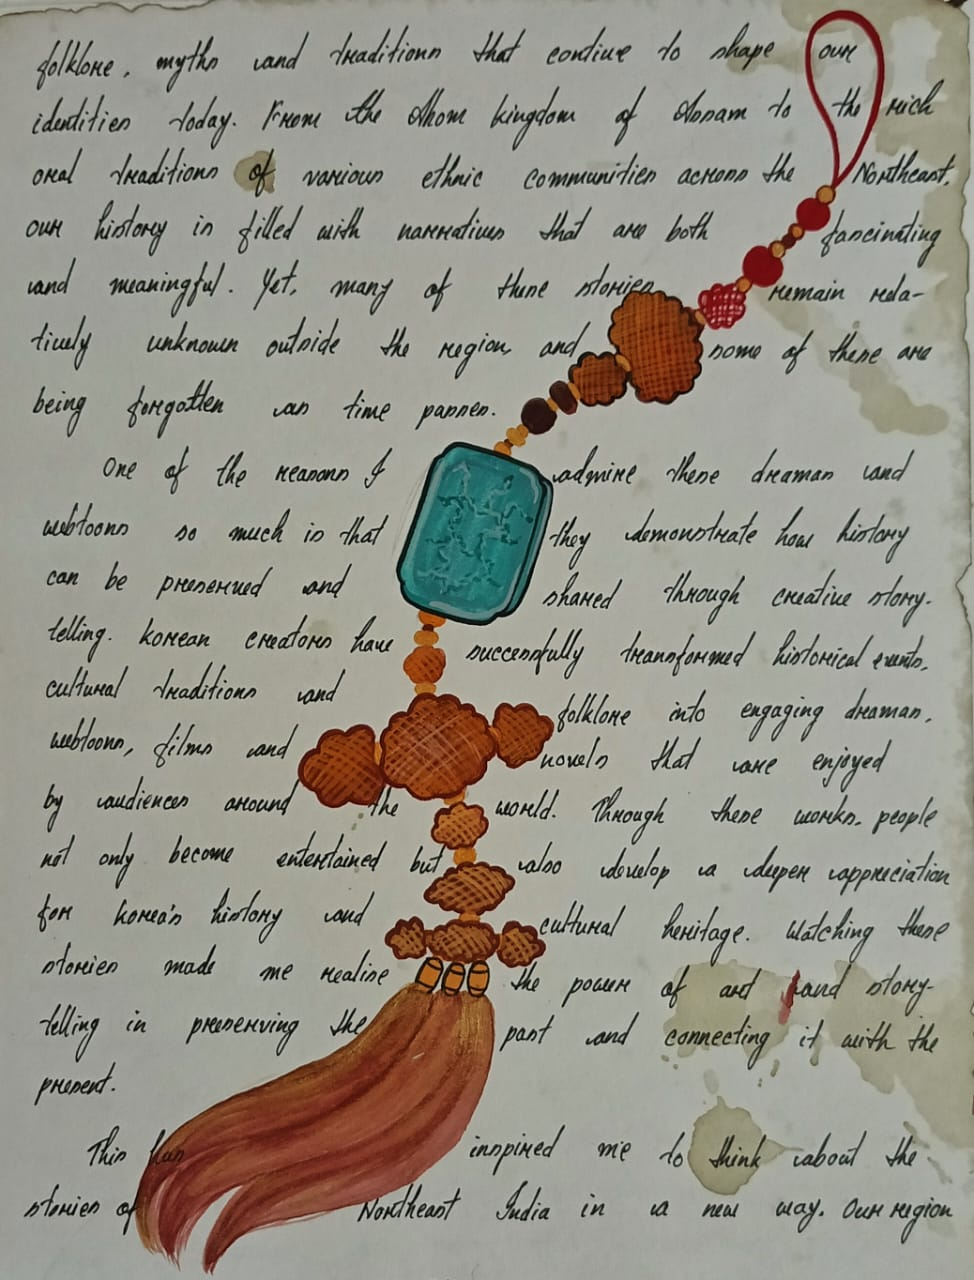 folklore, myths and traditions that continue to shape our
identities today. From the Ahom kingdom of Assam to the rich
oral traditions of various ethnic communities across the Northeast,
our history is filled with narratives that are both fascinating
and meaningful. Yet, many of these stories remain rela-
tively unknown outside the region, and some of these are
being forgotten as time passes.
One of the reasons I admire these dramas and
webtoons so much is that they demonstrate how history
can be preserved and shared through creative story-
telling. Korean creators have successfully transformed historical events,
cultural traditions and folklore into engaging dramas,
webtoons, films and novels that are enjoyed
by audiences around the world. Through these works, people
not only become entertained but also develop a deeper appreciation
for Korea's history and cultural heritage. Watching these
stories made me realise the power of art and story-
telling in preserving the past and connecting it with the
present.
This has inspired me to think about the
stories of Northeast India in a new way. Our region